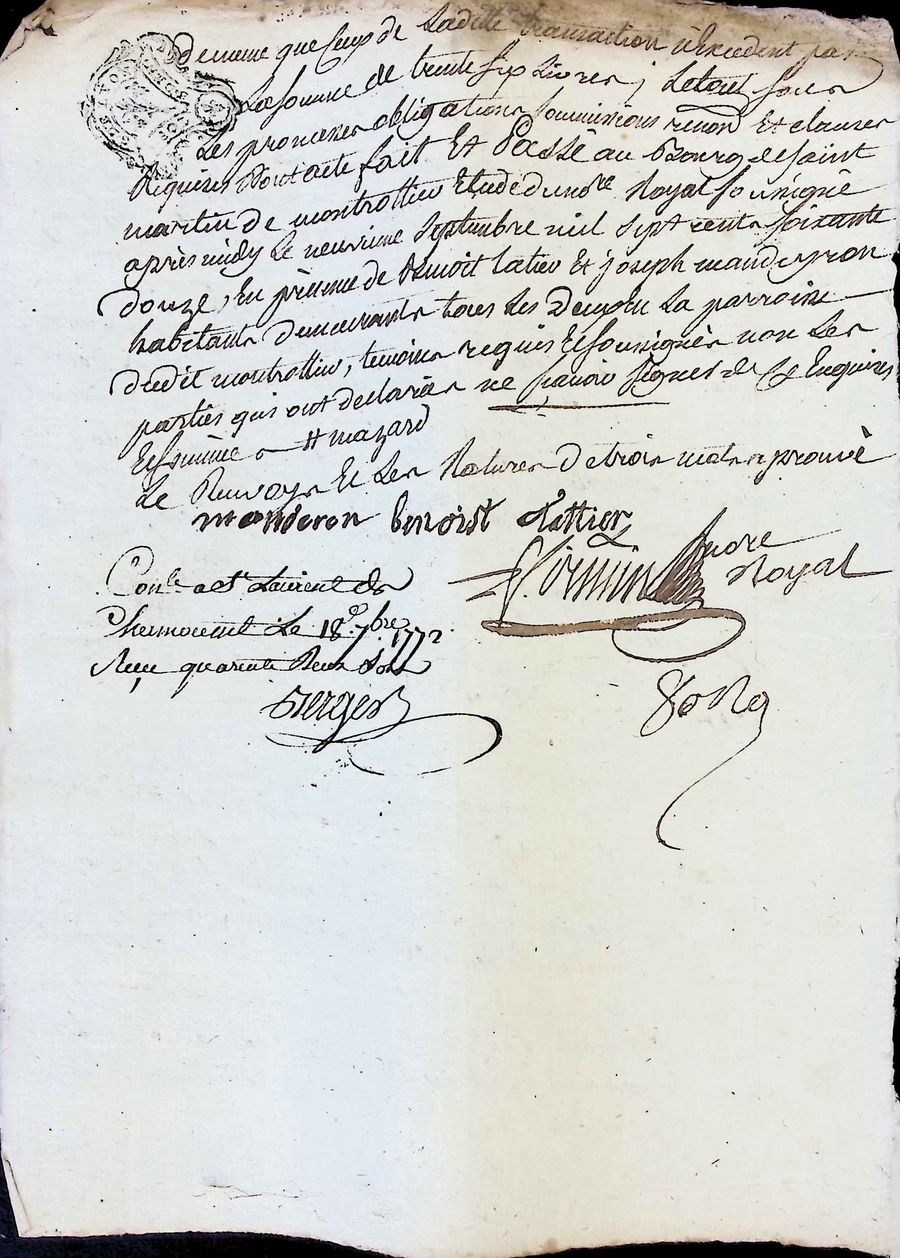 de meme que ceux de Ladite transaction n'Excedent pas
La somme de trente six Livres, Le tout sous
Les promesses obligations soummissions renon Et clauses
Requises Dont acte fait Et Passé au Bourg de saint
martin de montrottier Etude du nore Royal soussigné
après midy Le neuvieme septembre mil sept cents soixante
douze, En présence de Benoit latier Et joseph mandeyron
habitants demeurants tous les deux En La parroisse
dudit montrottier, temoins requis Et soussignés non Les
parties qui ont declarés ne savoir signer de ce Enquises
Et sommée a H mazard
Le Renvoys Et Les Ratures De trois mots aprouvé
manderon benoist Lattier
nore
Royal
Conle a St Laurent de
Chamousset Le 18e 7bre 1772
Reçu quarente Deux sols
Berger